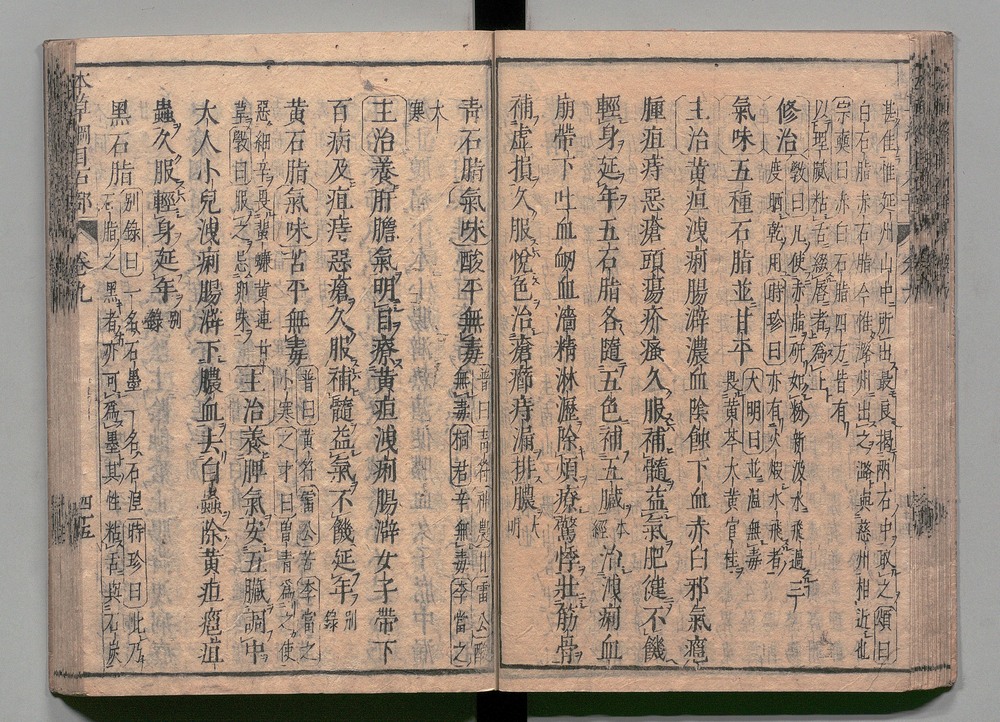 甚佳惟延州山中所出最良揭兩石中取之頌曰
白石脂赤石脂今惟潞州出之潞與慈州相近也
宗奭曰赤白石脂四方皆有
以理膩粘舌綴唇者爲上
修治斅曰凡使赤脂研如粉新汲水飛過三
度晒乾用時珍曰亦有火煅水飛者
氣味五種石脂並甘平大明曰並溫無毒
畏黄芩大黄官桂
主治黄疸洩痢腸澼膿血陰蝕下血赤白邪氣癰
腫疽痔惡瘡頭瘍疥瘙久服補髓益氣肥健不饑
輕身延年五石脂各隨五色補五臟本經治洩痢血
崩帶下吐血衂血濇精淋瀝除煩療驚悸壯筋骨
補虛損久服悅色治瘡癤痔漏排膿大明
青石脂氣味酸平無毒普曰青符神農甘雷公酸
無毒桐君辛無毒李當之
大寒
主治養肝膽氣明目療黄疸洩痢腸澼女子帶下
百病及疽痔惡瘡久服補髓益氣不饑延年別錄
黄石脂氣味苦平無毒普曰黄符雷公苦李當之
小寒之才曰曽青爲之使
惡細辛畏蜚蠊黄連甘
草斅曰服之忌卵味主治養脾氣安五臟調中
大人小兒洩痢腸澼下膿血去白蟲除黄疸癰疽
蟲久服輕身延年別錄
黒石脂別錄曰一名石墨一名石涅時珍曰此乃
石脂之黒者亦可爲墨其性粘舌與石炭
本草綱目石部 卷九 四十五